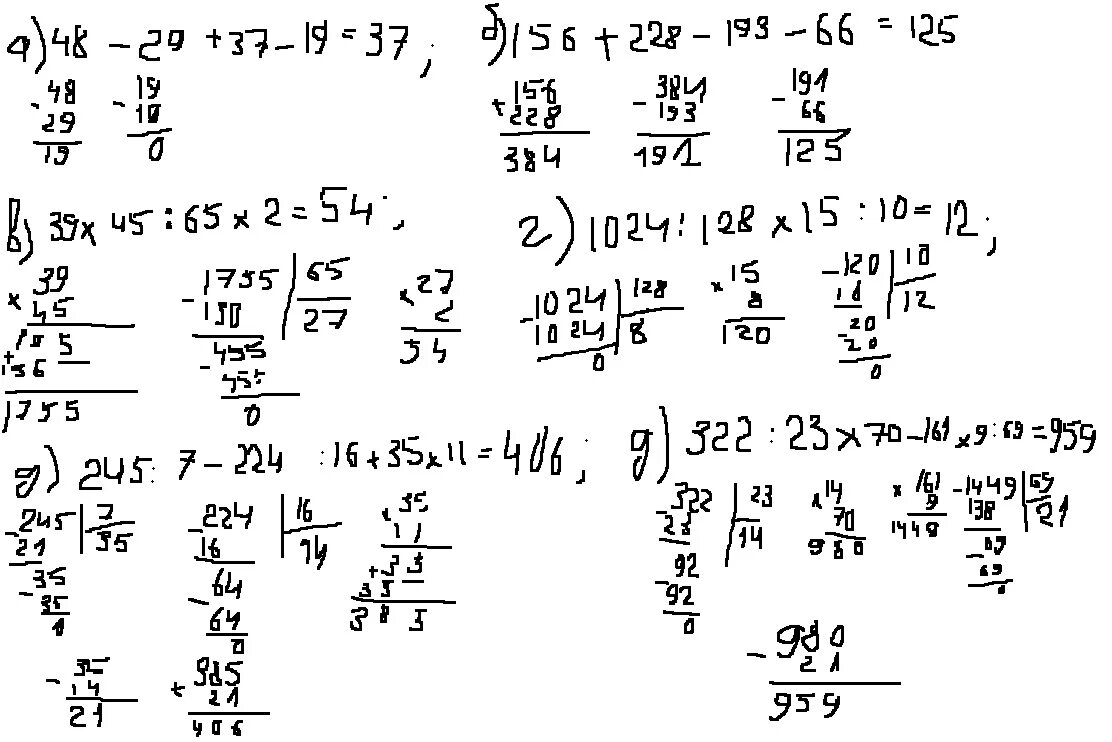 а) 48 - 29 + 37 - 19 = 37;
- 48
29
19
- 19
19
0
б) 156 + 228 - 193 - 66 = 125
+ 156
228
384
- 384
193
191
- 191
66
125
в) 39 x 45 : 65 x 2 = 54;
x 39
45
+ 195
156
1755
- 1755 | 65
130 | 27
- 455
455
0
x 27
2
54
г) 1024 : 128 x 15 : 10 = 12;
- 1024 | 128
1024 | 8
0
x 15
8
120
- 120 | 10
10 | 12
- 20
20
0
д) 245 : 7 - 224 : 16 + 35 x 11 = 406;
- 245 | 7
21 | 35
- 35
35
0
- 224 | 16
16 | 14
- 64
64
0
x 35
11
+ 35
35
385
- 35
14
21
+ 385
21
406
д) 322 : 23 x 70 - 161 x 9 : 69 = 959
- 322 | 23
23 | 14
- 92
92
0
x 14
70
980
x 161
9
1449
- 1449 | 69
138 | 21
- 69
69
0
- 980
21
959